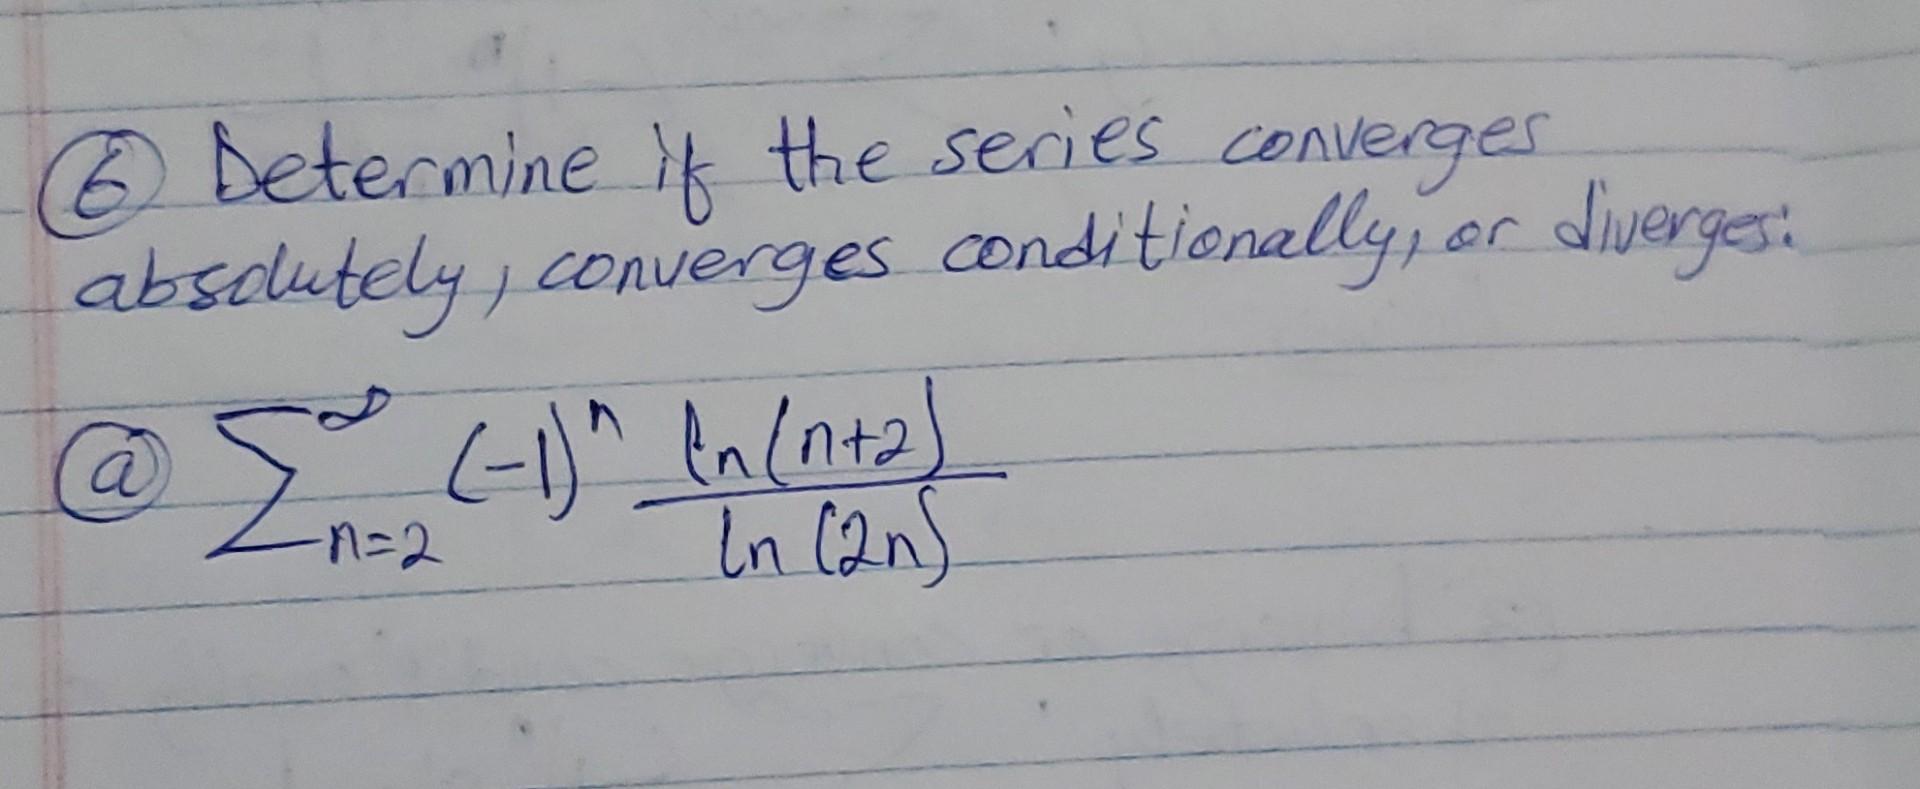 ⑥ Determine if the series converges
absolutely, converges conditionally, or diverges:
ⓐ ∑_{n=2}^{∞} (-1)^n ln(n+2) / ln(2n)